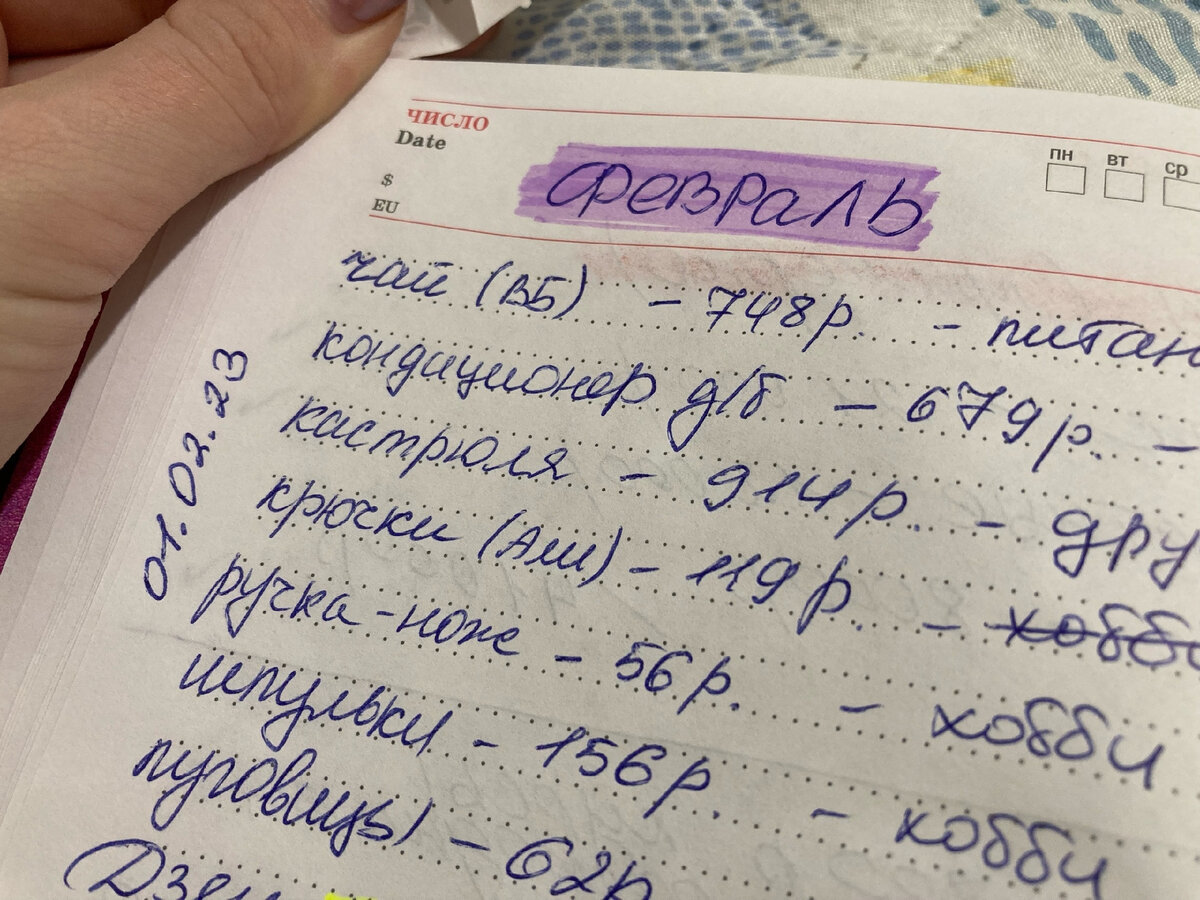 ЧИСЛО
Date
$
EU
ПН ВТ СР
ФЕВРАЛЬ
01.02.23
чай (ВБ) - 748р. - питан
кондиционер д/б - 679р. -
кастрюля - 914р. - дру
крючки (Али) - 119р. - хобби
ручка-нож - 56р. - хобби
шпульки - 156р. - хобби
пуговицы - 62р